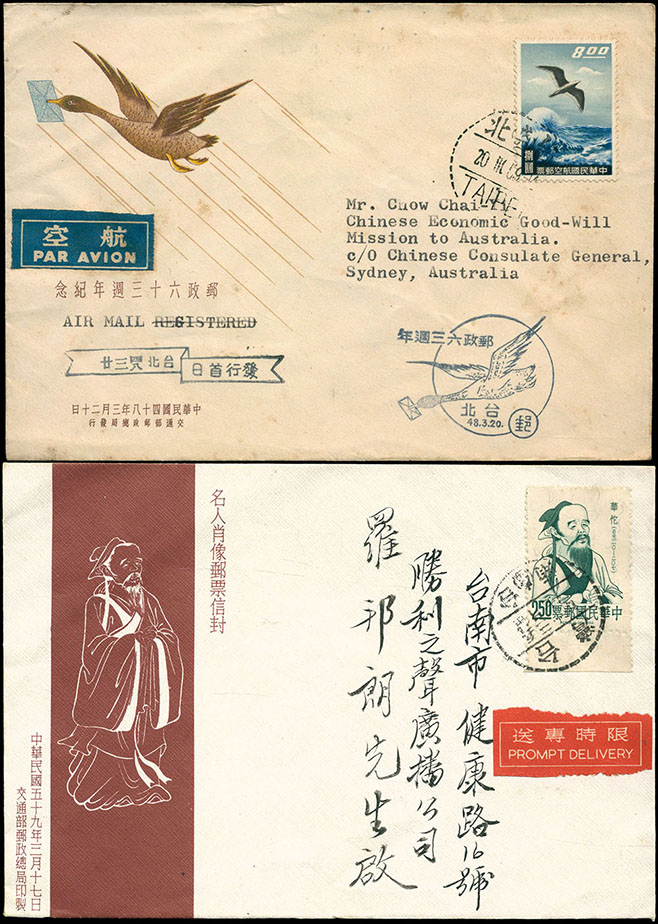 8.00
捌圓
票郵空航國民華中
台北
20 III 59
TAIPEI
空航
PAR AVION
Mr. Chow Chai-
Chinese Economic Good-Will
Mission to Australia.
c/o Chinese Consulate General,
Sydney, Australia
念紀年週三十六政郵
AIR MAIL REGISTERED
廿三㒭北台
日首行發
年週三六政郵
台北
48.3.20.
郵
日十二月三年八十四國民華中
行發局總政郵部通交
名人肖像郵票信封
華佗
2.50
票郵國民華中
台南市健康路16號
勝利之聲廣播公司
羅邦朗先生啟
送專時限
PROMPT DELIVERY
中華民國五十九年三月十七日
交通部郵政總局印製